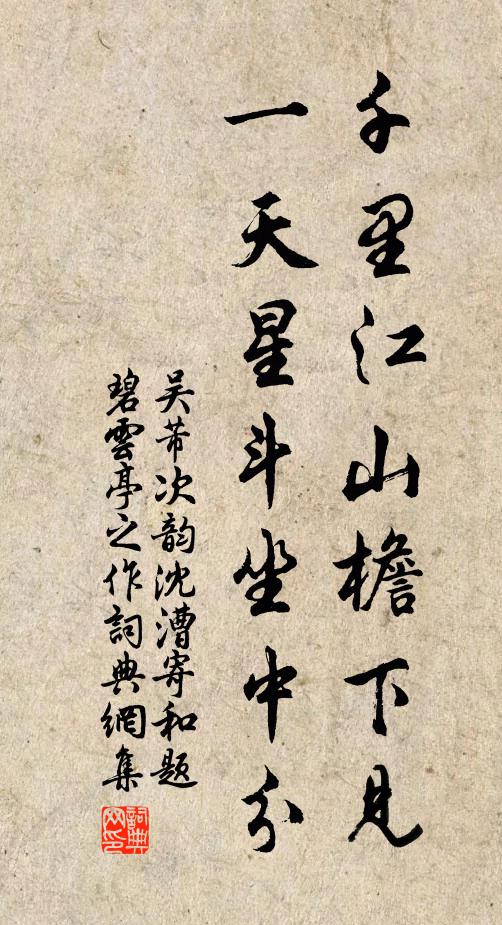 千里江山檐下見
一天星斗坐中分
吴芾次韵沈漕寄和题
碧雲亭之作詞典網集
詞典
网印